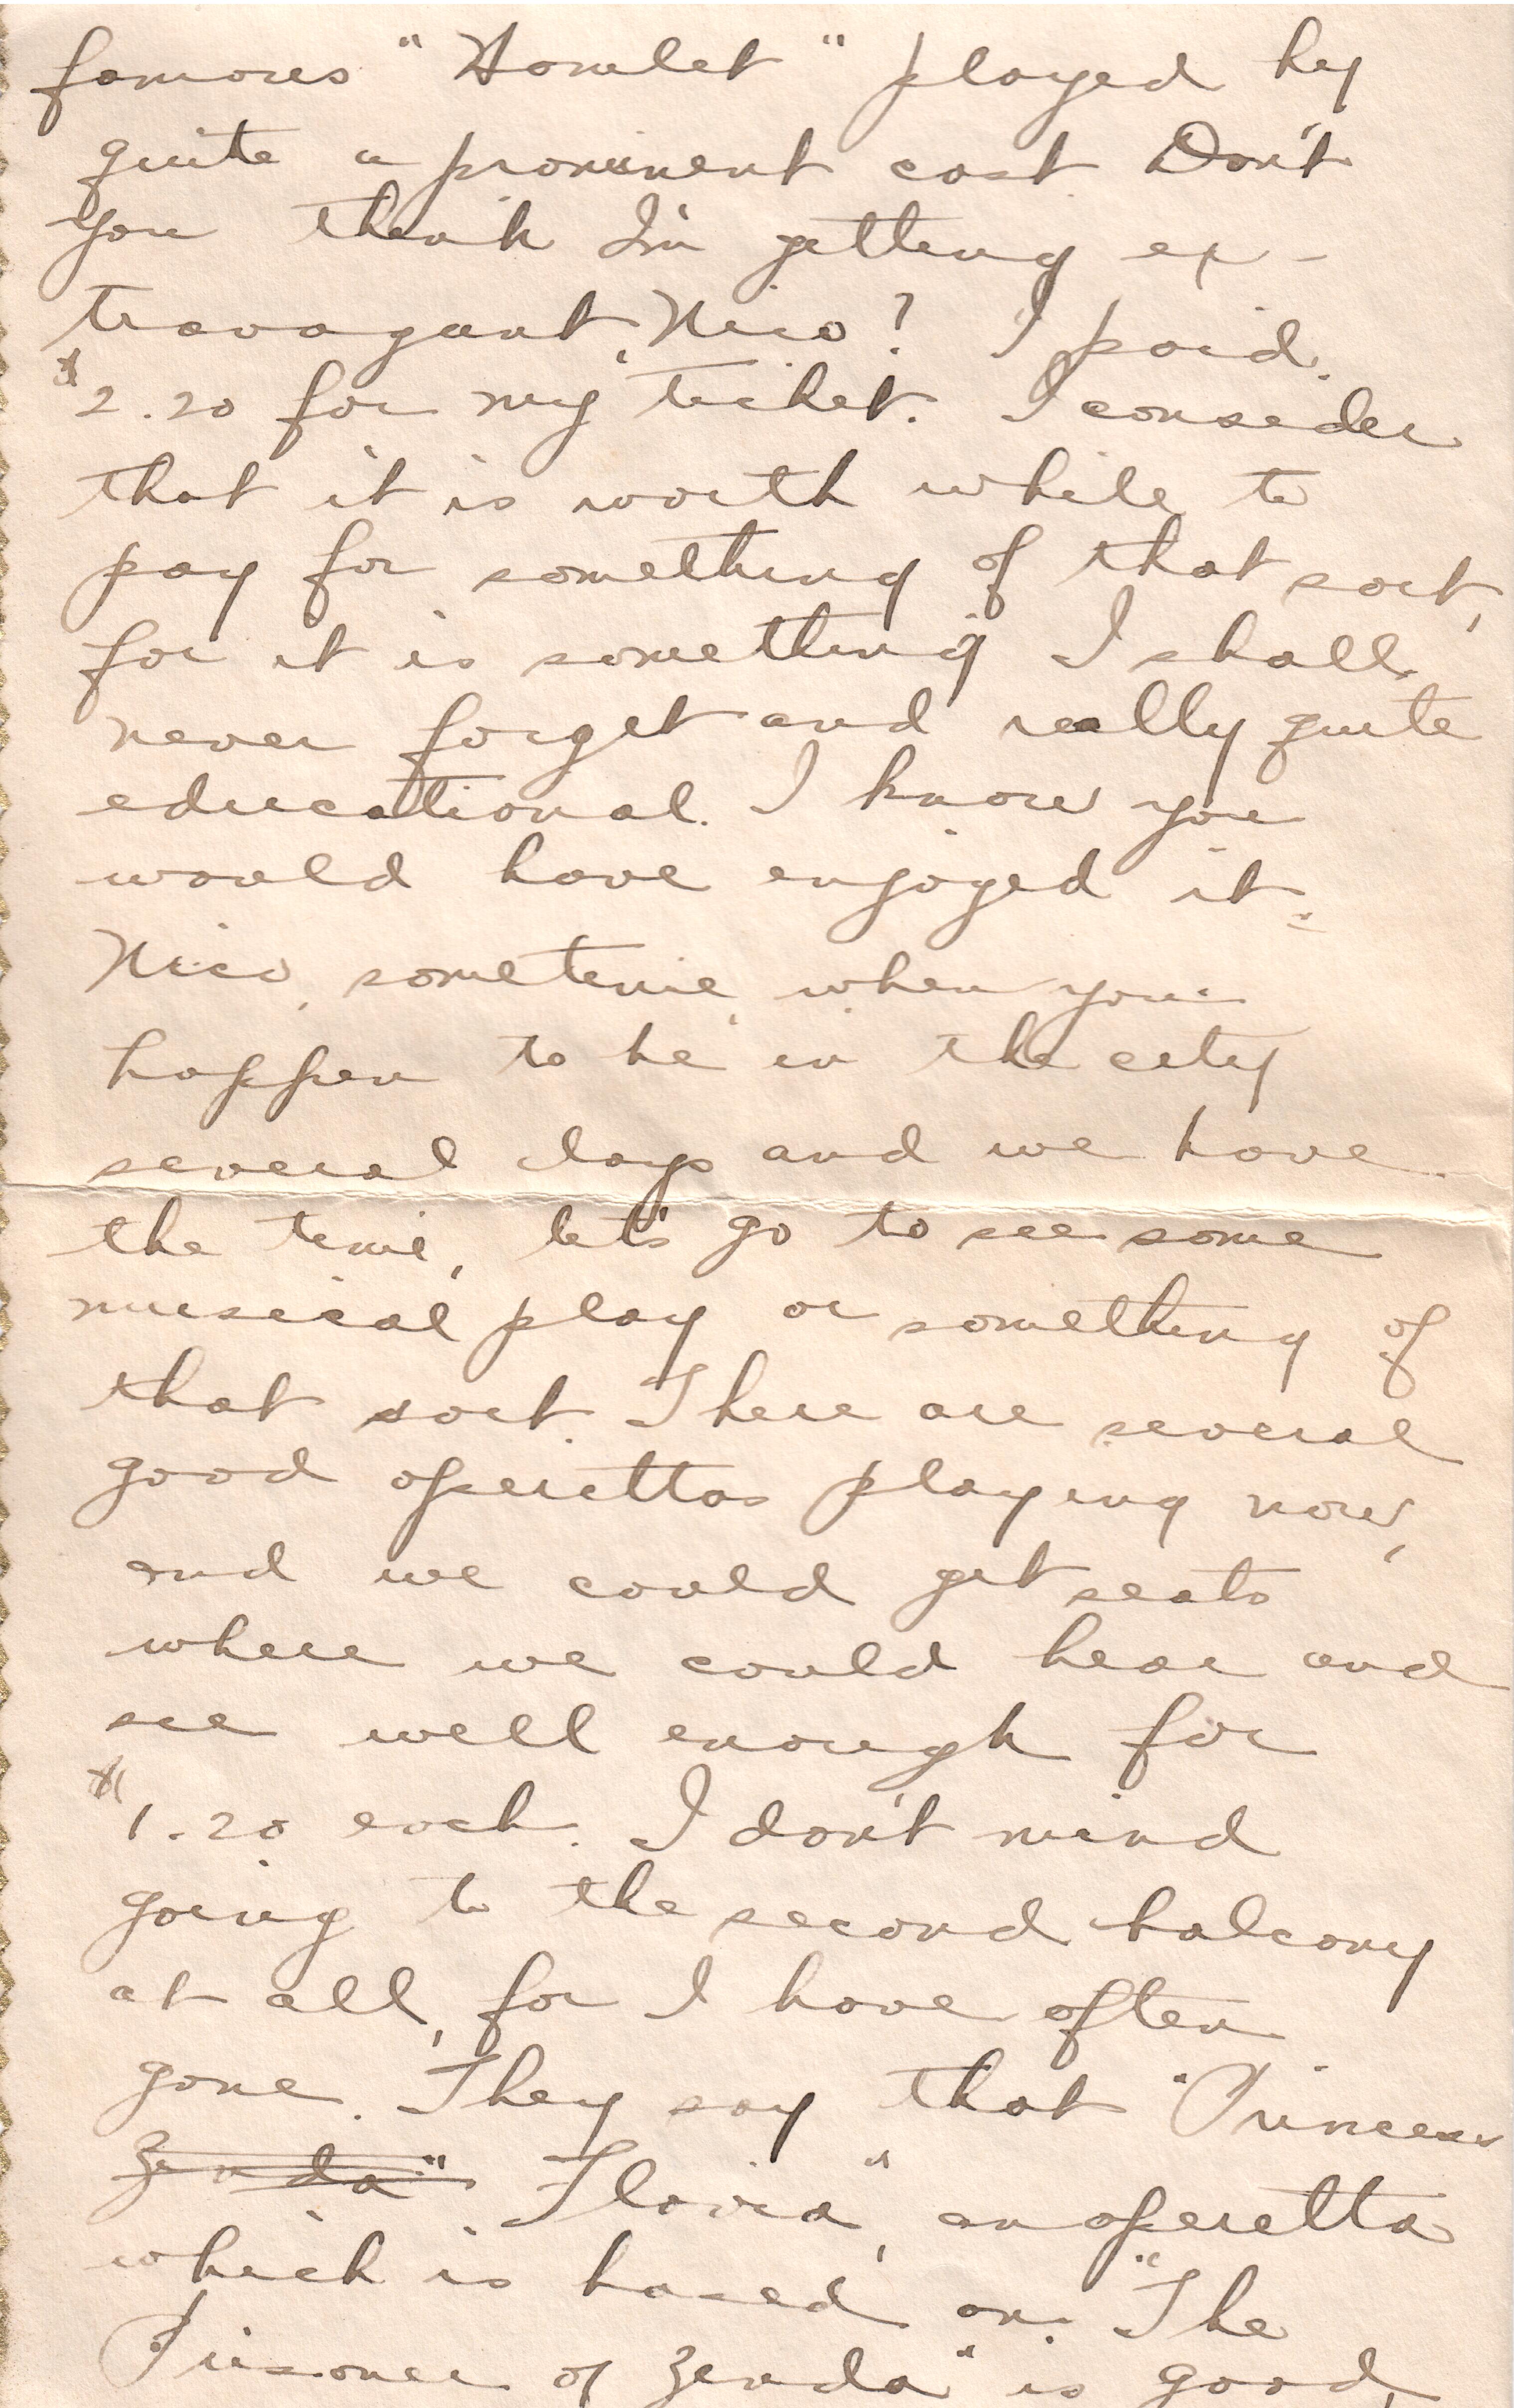 famous "Hamlet" played by
quite a prominent cast. Don't
you think I'm getting ex-
travagant, Nico? I paid
$2.20 for my ticket. I consider
that it is worth while to
pay for something of that sort,
for it is something I shall
never forget and really quite
educational. I know you
would have enjoyed it.
Nico, sometime, when you
happen to be in the city
several days and we have
the time, let's go to see some
musical play or something of
that sort. There are several
good operettas playing now,
and we could get seats
where we could hear and
see well enough for
$1.20 each. I don't mind
going to the second balcony
at all, for I have often
gone. They say that "Princess
Zenda" Flavia", an operetta
which is based on "The
Prisoner of Zenda" is good,